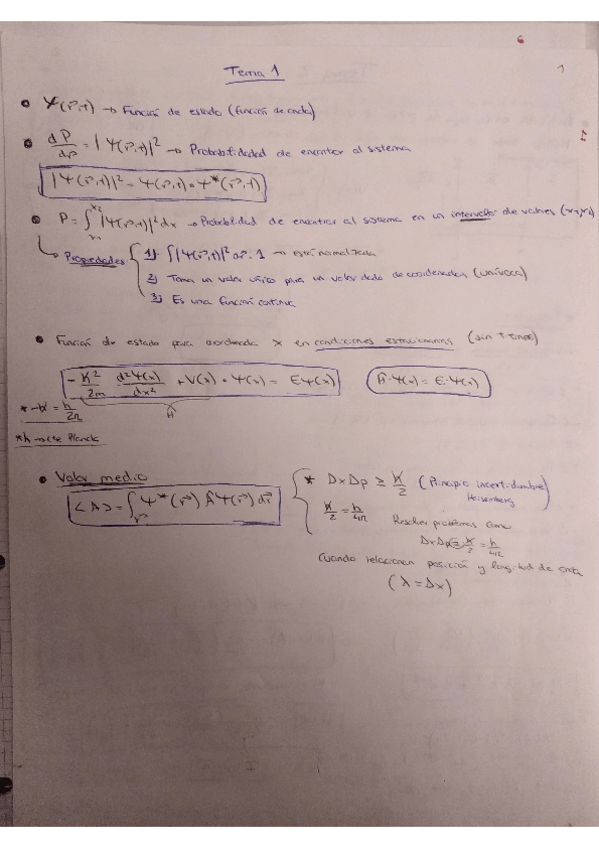 Tema 1
1
Ψ(r⃗,t) → Función de estado (función de onda)
dP/dr⃗ = |Ψ(r⃗,t)|² → Probabilidad de encontrar al sistema
|Ψ(r⃗,t)|² = Ψ(r⃗,t) · Ψ*(r⃗,t)
P = ∫ₓ₁ˣ² |Ψ(r⃗,t)|² dx → Probabilidad de encontrar al sistema en un intervalo de valores
Propiedades
1) ∫|Ψ(r⃗,t)|² dr⃗ = 1 → Está normalizada
2) Toma un valor único para un valor dado de coordenadas (unívoca)
3) Es una función continua
Función de estado para coordenada X en condiciones estacionarias (sin t
-ħ²/2m d²Ψ(x)/dx² + V(x) · Ψ(x) = EΨ(x)
Ĥ·Ψ(x) = E·Ψ(x)
Ĥ
* → ħ = h/2π
* h → cte Planck
Valor medio
<A> = ∫ Ψ*(r⃗) Â Ψ(r⃗) dr⃗
* DxDp ≥ ħ/2 (Principio incertidumbre
Heisenberg)
ħ/2 = h/4π
Resolver problemas como
DxDp = ħ/2 = h/4π
Cuando relacionen posición y longitud de onda
(λ = Dx)